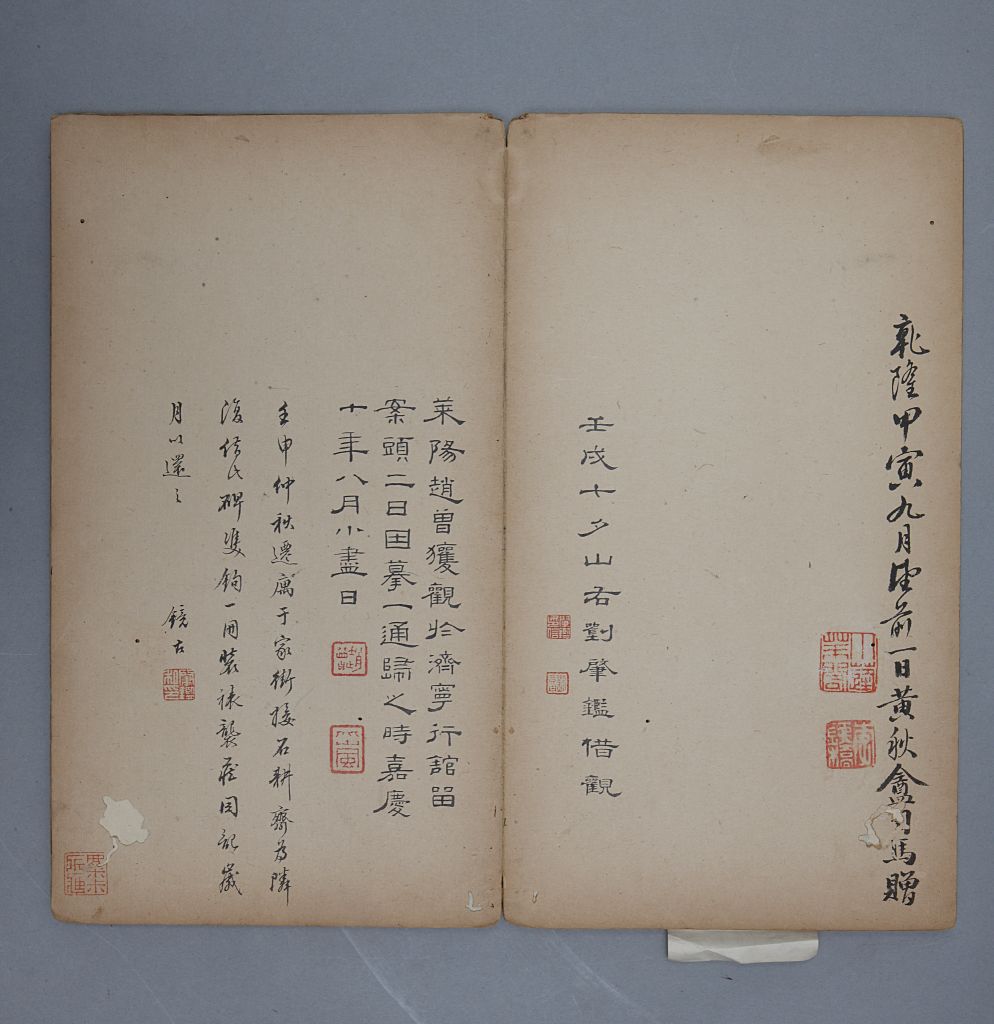 乾隆甲寅九月望前一日黃秋盦司馬贈
壬戌十夕山右劉肇鑑借觀
萊陽趙曾獲觀於濟寧行舘留
案頭二日因摹一通歸之時嘉慶
十年八月小盡日
壬申仲秋遷寓于家衖接石耕齋為隣
復借氏碑雙鉤一冊裝裱襲藏因記歲
月以還之
鏡古